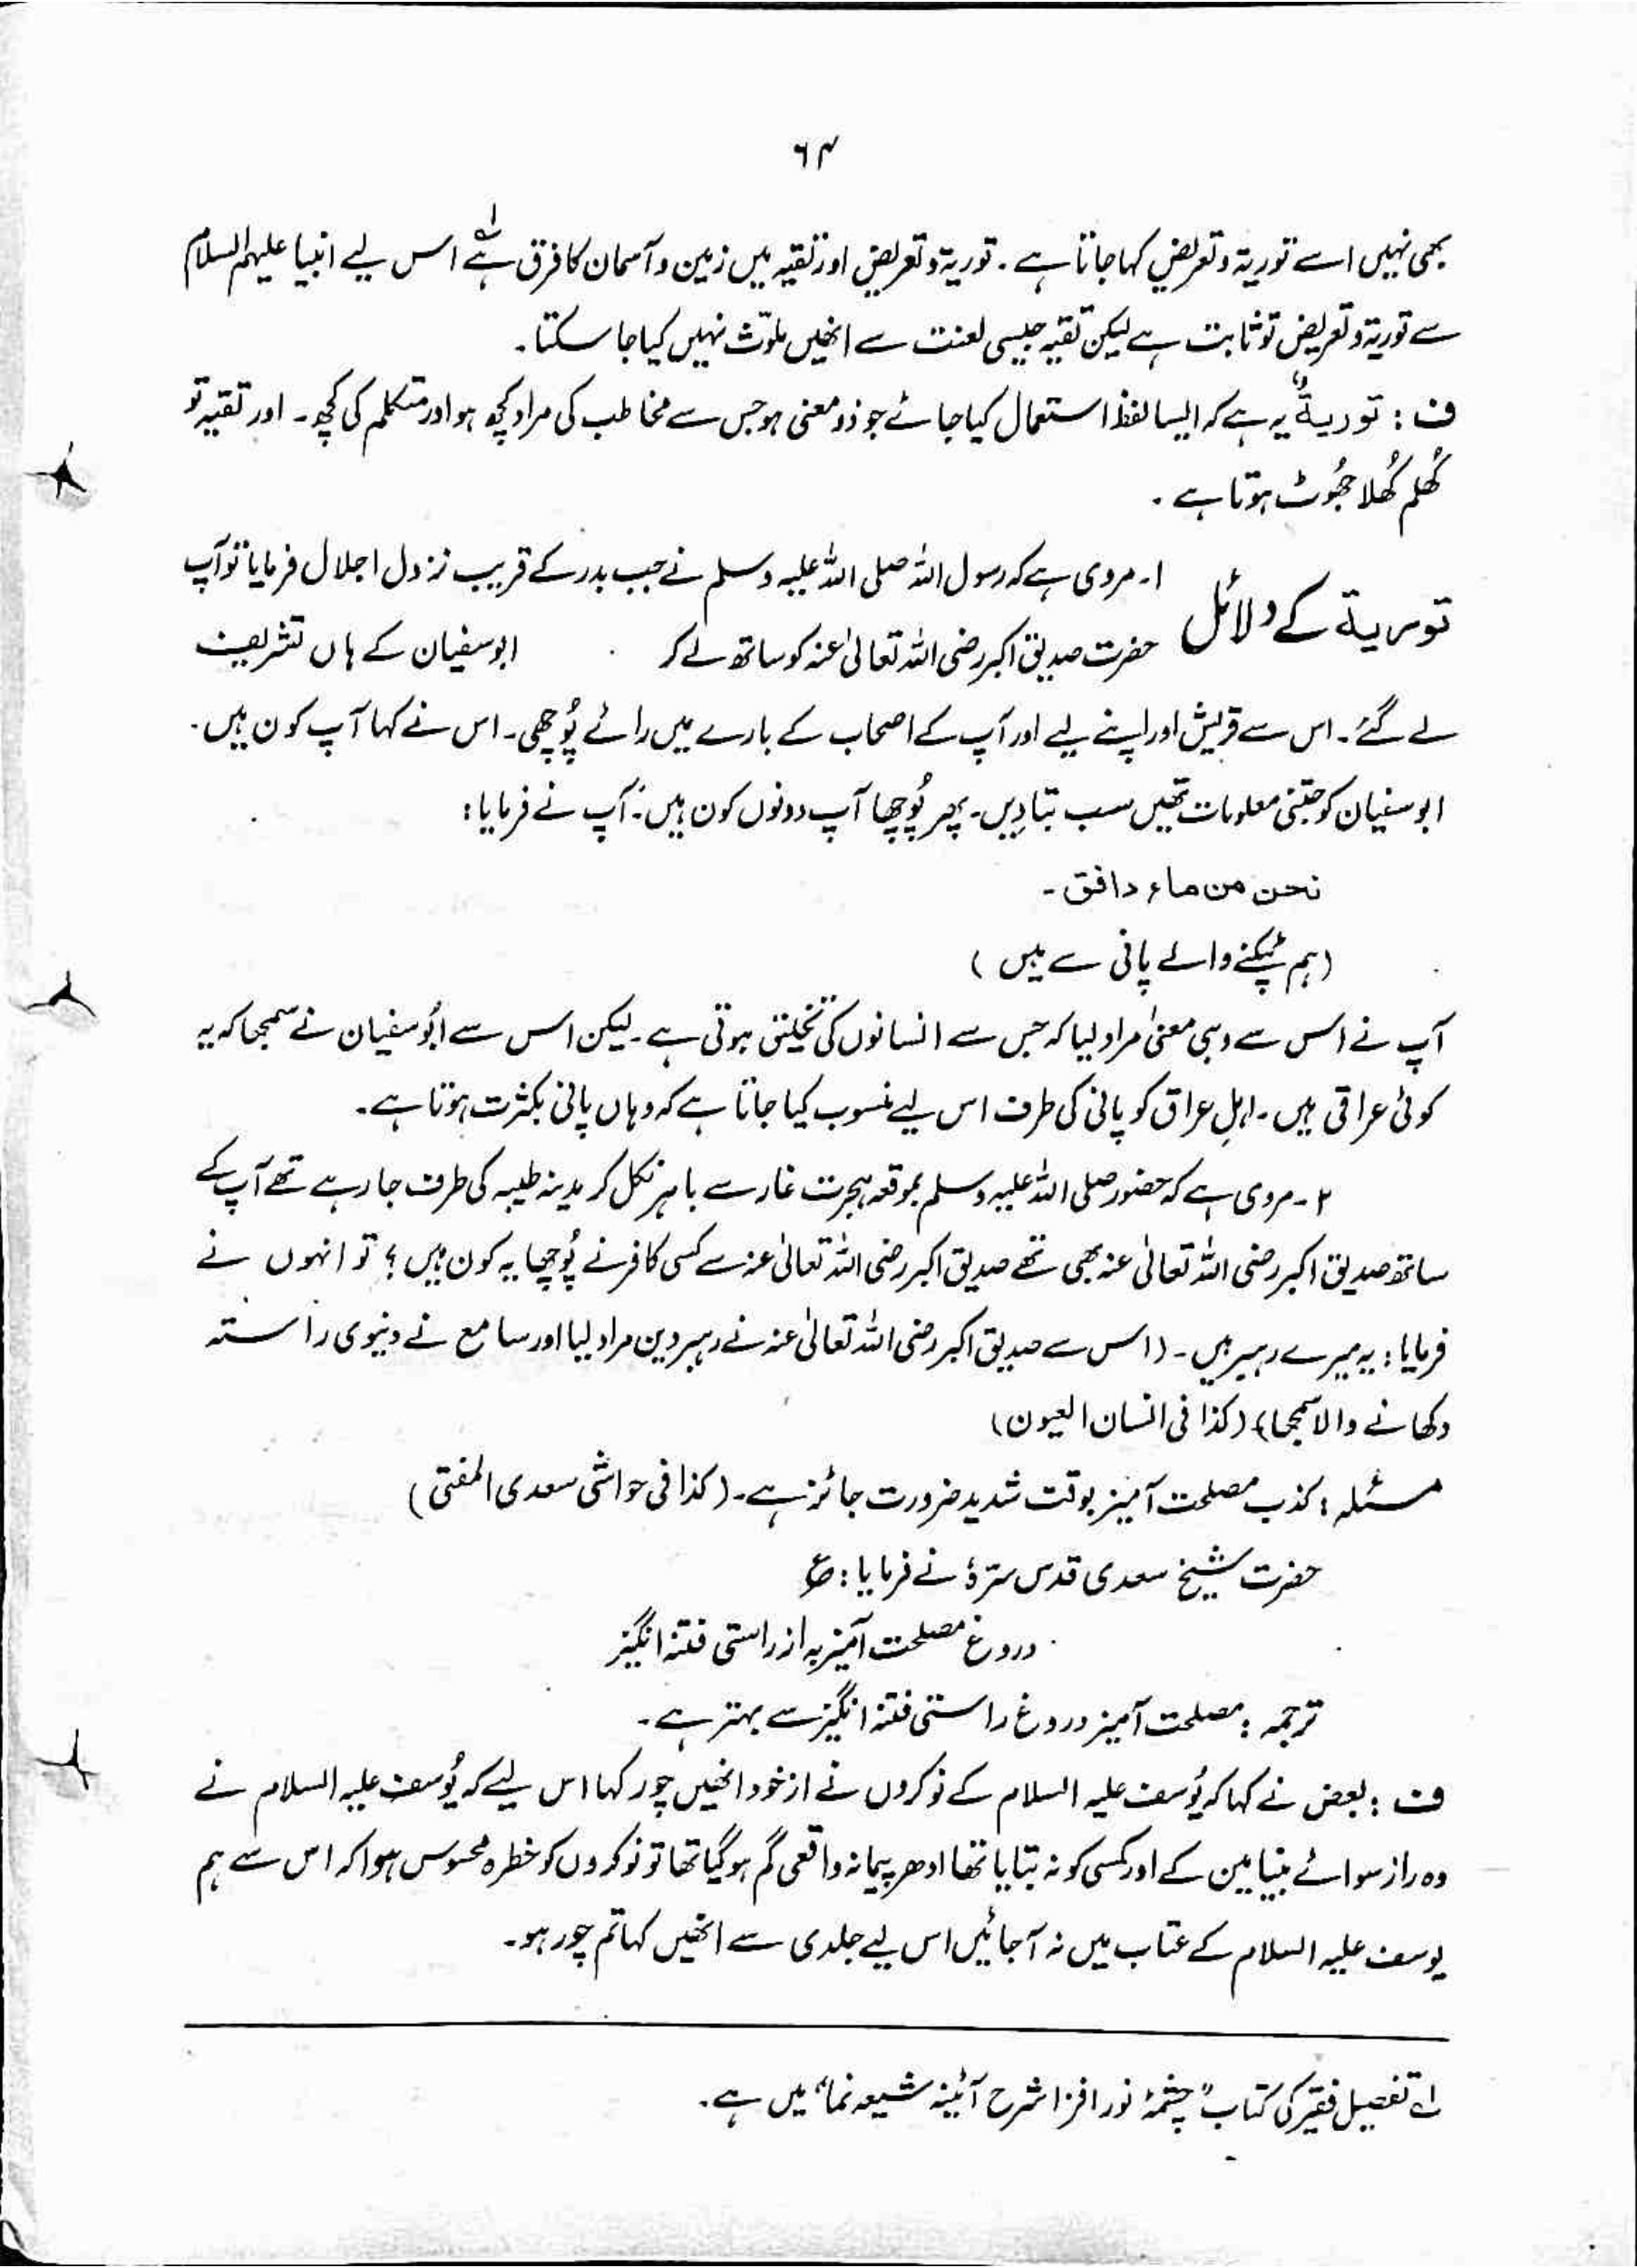 ۶۴
بھی نہیں اسے توریۃ و تعریض کہا جاتا ہے ۔ توریۃ و تعریض اور تقیہ میں زمین و آسمان کا فرق ہے لہ اس لیے انبیا علیہم السلام
سے توریۃ و تعریض تو ثابت ہے لیکن تقیہ جیسی لعنت سے انھیں ملوّث نہیں کیا جا سکتا ۔
ف : توریۃٌ یہ ہے کہ ایسا لفظ استعمال کیا جائے جو ذو معنی ہو جس سے مخاطب کی مراد کچھ ہو اور متکلم کی کچھ ۔ اور تقیہ تو
کُھلم کُھلا جھُوٹ ہوتا ہے ۔
توریۃ کے دلائل
۱۔ مروی ہے کہ رسول اللہ صلی اللہ علیہ وسلم نے جب بدر کے قریب نزول اجلال فرمایا تو آپ
حضرت صدیق اکبر رضی اللہ تعالیٰ عنہ کو ساتھ لے کر ابو سفیان کے ہاں تشریف
لے گئے ۔ اس سے قریش اور اپنے لیے اور آپ کے اصحاب کے بارے میں رائے پُوچھی ۔ اس نے کہا آپ کون ہیں ۔
ابو سفیان کو جتنی معلومات تھیں سب بتا دیں ۔ پھر پُوچھا آپ دونوں کون ہیں ۔ آپ نے فرمایا :
نحن من ماء دافق ۔
(ہم ٹپکنے والے پانی سے ہیں )
آپ نے اس سے وہی معنیٰ مراد لیا کہ جس سے انسانوں کی تخلیق ہوتی ہے ۔ لیکن اس سے ابُو سفیان نے سمجھا کہ یہ
کوئی عراقی ہیں ۔ اہلِ عراق کو پانی کی طرف اس لیے منسوب کیا جاتا ہے کہ وہاں پانی بکثرت ہوتا ہے ۔
۲ ۔ مروی ہے کہ حضور صلی اللہ علیہ وسلم بموقعہ ہجرت غار سے باہر نکل کر مدینہ طیبہ کی طرف جا رہے تھے آپ کے
ساتھ صدیق اکبر رضی اللہ تعالیٰ عنہ بھی تھے صدیق اکبر رضی اللہ تعالیٰ عنہ سے کسی کافر نے پُوچھا یہ کون ہیں ؟ تو انہوں نے
فرمایا : یہ میرے رہبر ہیں ۔ (اس سے صدیق اکبر رضی اللہ تعالیٰ عنہ نے رہبرِ دین مراد لیا اور سامع نے دنیوی راستہ
دکھانے والا سمجھا) (کذا فی انسان العیون)
مسئلہ : کذب مصلحت آمیز بوقت شدید ضرورت جائز ہے ۔ (کذا فی حواشی سعدی المفتی )
حضرت شیخ سعدی قدس سترہٗ نے فرمایا : ع
دروغ مصلحت آمیز بہ از راستی فتنہ انگیز
ترجمہ : مصلحت آمیز دروغ راستی فتنہ انگیز سے بہتر ہے ۔
ف : بعض نے کہا کہ یُوسف علیہ السلام کے نوکروں نے از خود انھیں چور کہا اس لیے کہ یُوسف علیہ السلام نے
وہ راز سوائے بنیامین کے اور کسی کو نہ بتایا تھا ادھر پیمانہ واقعی گم ہو گیا تھا تو نوکروں کو خطرہ محسوس ہوا کہ اس سے ہم
یوسف علیہ السلام کے عتاب میں نہ آجائیں اس لیے جلدی سے انھیں کہا تم چور ہو ۔
لہ تفصیل فقیر کی کتاب "چشمۂ نور افزا شرح آئینہ شیعہ نما" میں ہے ۔